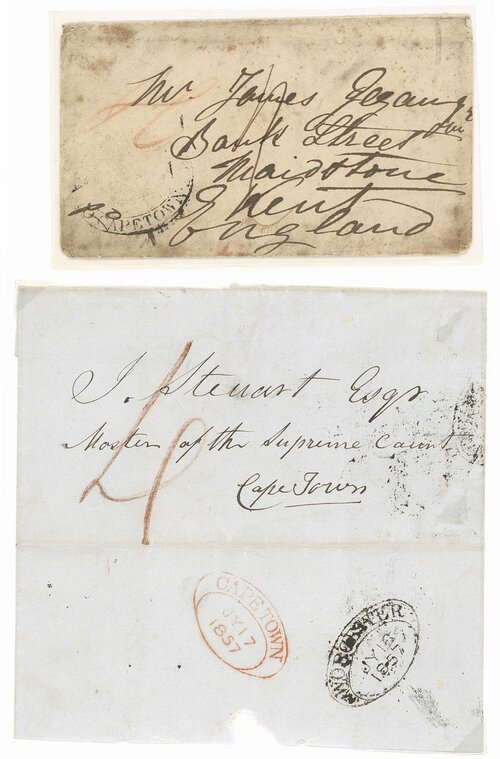 Mr. James
Bank Street
Maidstone
Kent
England
CAPETOWN
J. Steuart Esqr
Master of the Supreme Court
Cape Town
4
CAPE TOWN
JY 17
1857
WORCESTER
1857